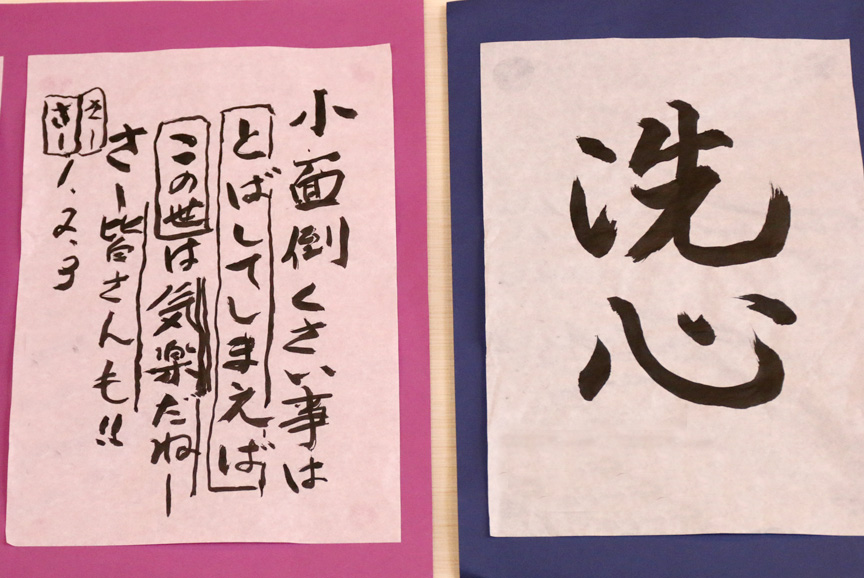 洗心
小面倒くさい事は
とばしてしまえば
この世は気楽だねー
さー皆さんも!!
さー
さー1.2.3